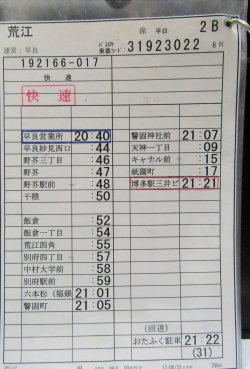 荒江
平日
2B
運営：早良
31923022
6頁
192166-017
快速
快速
早良営業所 20:40
早良妙見西口 :44
野芥三丁目 :46
野芥 :47
野芥駅前 :48
干隈 :50
飯倉 :52
飯倉三丁目 :54
荒江四角 :55
別府四丁目 :57
中村大学前 :58
別府駅前 :59
六本松（福銀 21:01
警固町 21:05
警固神社前 21:07
天神一丁目 :09
キャナル前 :15
祇園町 :17
博多駅三井ビ 21:21
(回送)
おたふく駐車 21:22
(31)